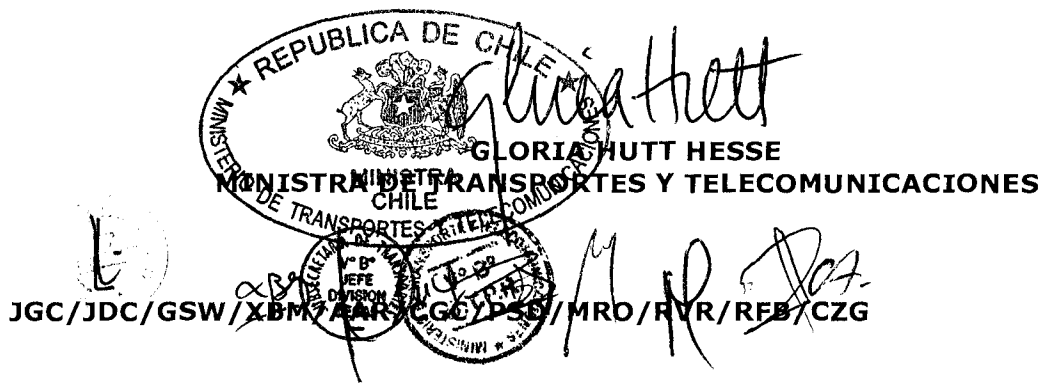 ★ REPUBLICA DE CHILE ★
MINISTERIO DE TRANSPORTES Y TELECOMUNICACIONES
MINISTRA
CHILE
Gloria Hutt
GLORIA HUTT HESSE
MINISTRA DE TRANSPORTES Y TELECOMUNICACIONES
V° B°
JEFE
DIVISION
V° B°
JGC/JDC/GSW/XBM/AAR/CGC/PSD/MRO/RVR/RFB/CZG